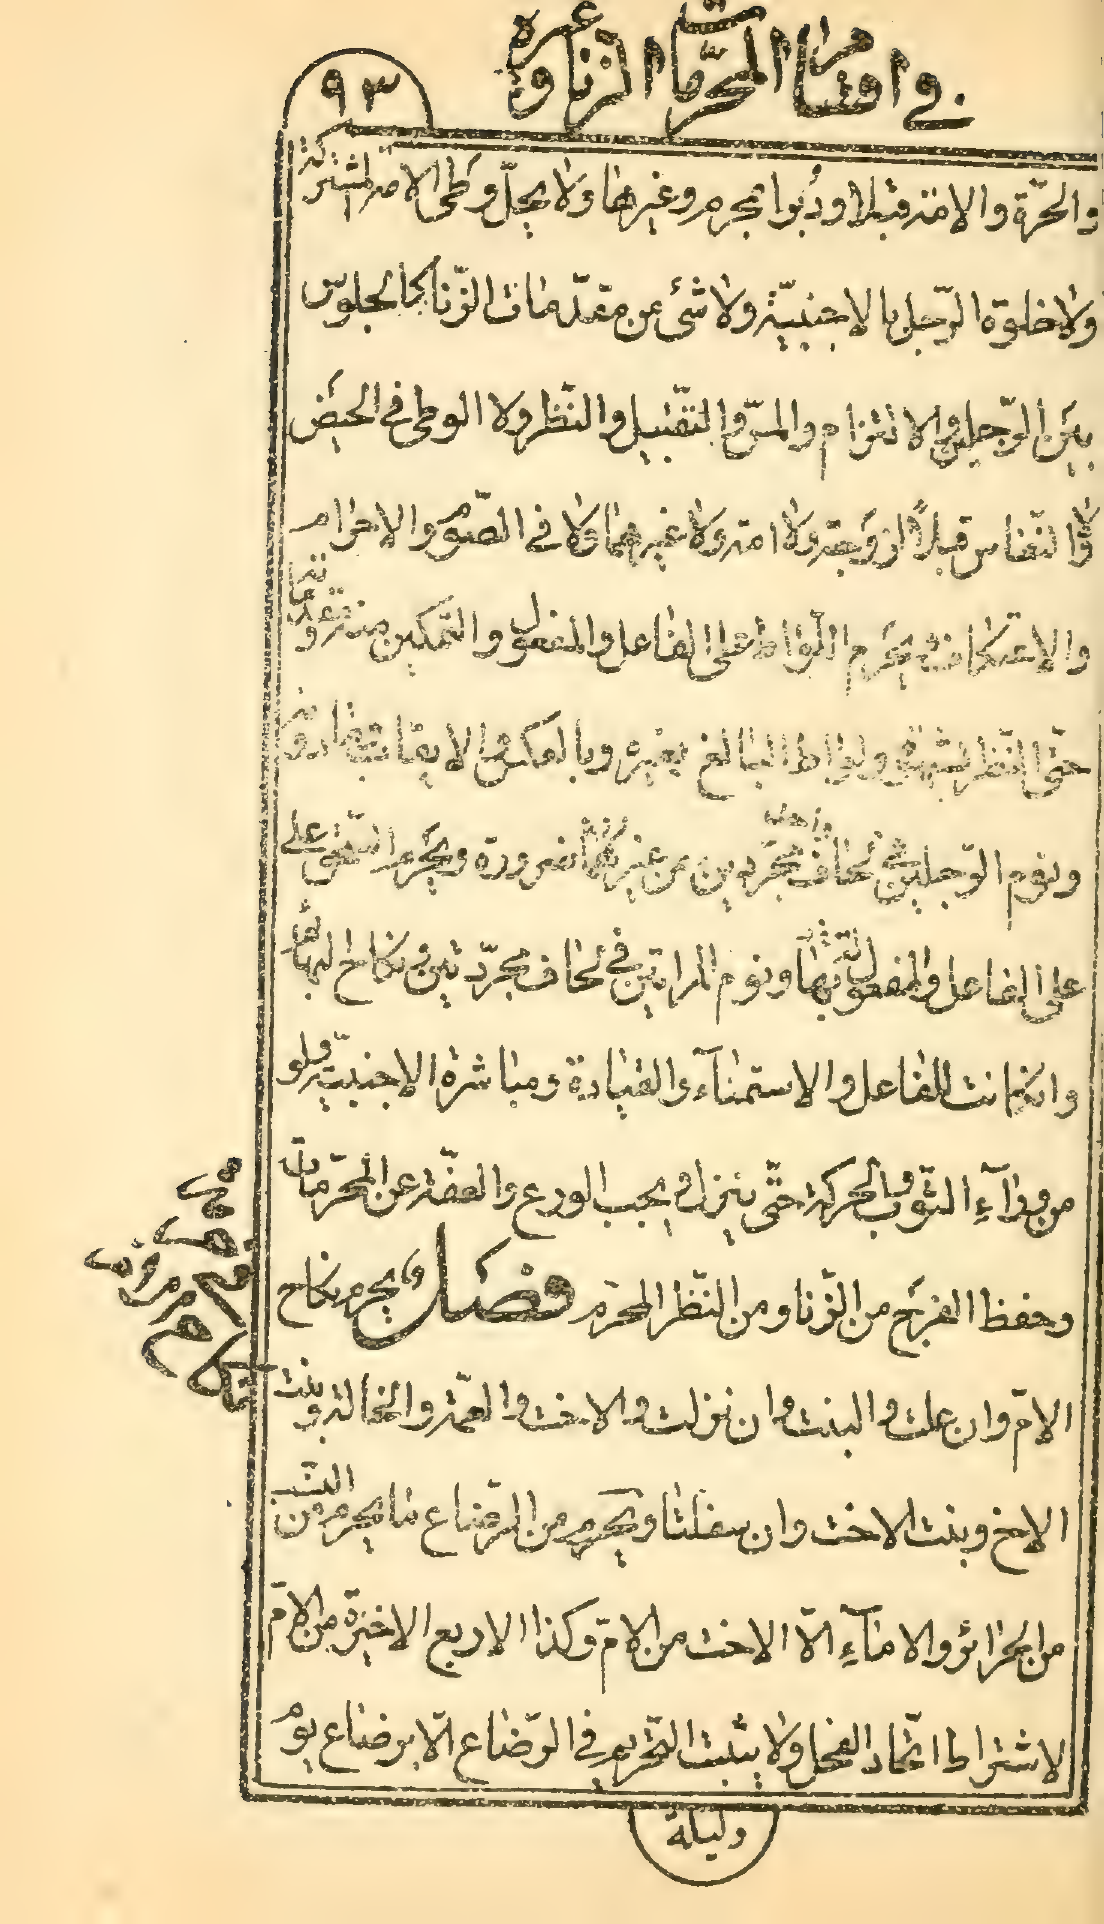 في اقسام المحرمات الزنا وغيره
٩٣
والحرّة والامة قبلا او دبرا بمحرم وغيرها ولا يحلّ وطى الامة المشتركة
ولا خلوة الرّجل بالاجنبيّة ولا شئ من مقدّمات الزّنا كالجلوس
بين الرّجلين والالتزام والمسّ والتّقبيل والنّظر ولا الوطى في الحيض
والنّفاس قبلاً لزوجته ولا امته ولا غيرهما ولا في الصّوم والاحرام
والاعتكاف ويحرم اللّواط على الفاعل والمفعول والتّمكين منه
حتّى النّظر بشهوة ولواط البالغ بغيره وبالعكس والايقاب فما دونه
ونوم الرّجلين في لحاف واحد مجرّدين من غير ضرورة ويحرم السّحق على
على الفاعل والمفعول بها ونوم المراتين في لحاف مجرّدتين ونكاح البهائم
وان كانت للفاعل والاستمنآء والقيادة ومباشرة الاجنبيّة ولو
من ورآء الثّوب والحركة حتّى ينزل ويجب الورع والعفّة عن المحرّمات
وحفظ الفرج من الزّنا ومن النّظر المحرّم فصل ويحرم نكاح
الامّ وان علت والبنت وان نزلت والاخت والعمّة والخالة وبنت
الاخ وبنت الاخت وان سفلتا ويحرم من الرّضاع ما يحرم من النّسب
من الحرائر والامآء الّا الاخت من الامّ وكذا الاربع الاخيرة من الامّ
لاشتراط اتّحاد الفحل ولا يثبت التّحريم في الرّضاع الّا برضاع يوم
وليلة